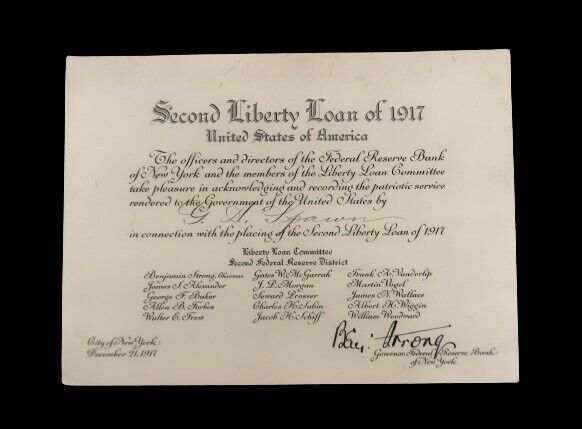 Second Liberty Loan of 1917
United States of America
The officers and directors of the Federal Reserve Bank
of New York and the members of the Liberty Loan Committee
take pleasure in acknowledging and recording the patriotic service
rendered to the Government of the United States by
G. A. Spawn
in connection with the placing of the Second Liberty Loan of 1917
Liberty Loan Committee
Second Federal Reserve District
Benjamin Strong, Chairman Gates W. McGarrah Frank A. Vanderlip
James S. Alexander J. P. Morgan Martin Vogel
George F. Baker Seward Prosser James N. Wallace
Allen B. Forbes Charles H. Sabin Albert H. Wiggin
Walter E. Frew Jacob H. Schiff William Woodward
Benj. Strong
City of New York Governor, Federal Reserve Bank
December 21, 1917 of New York